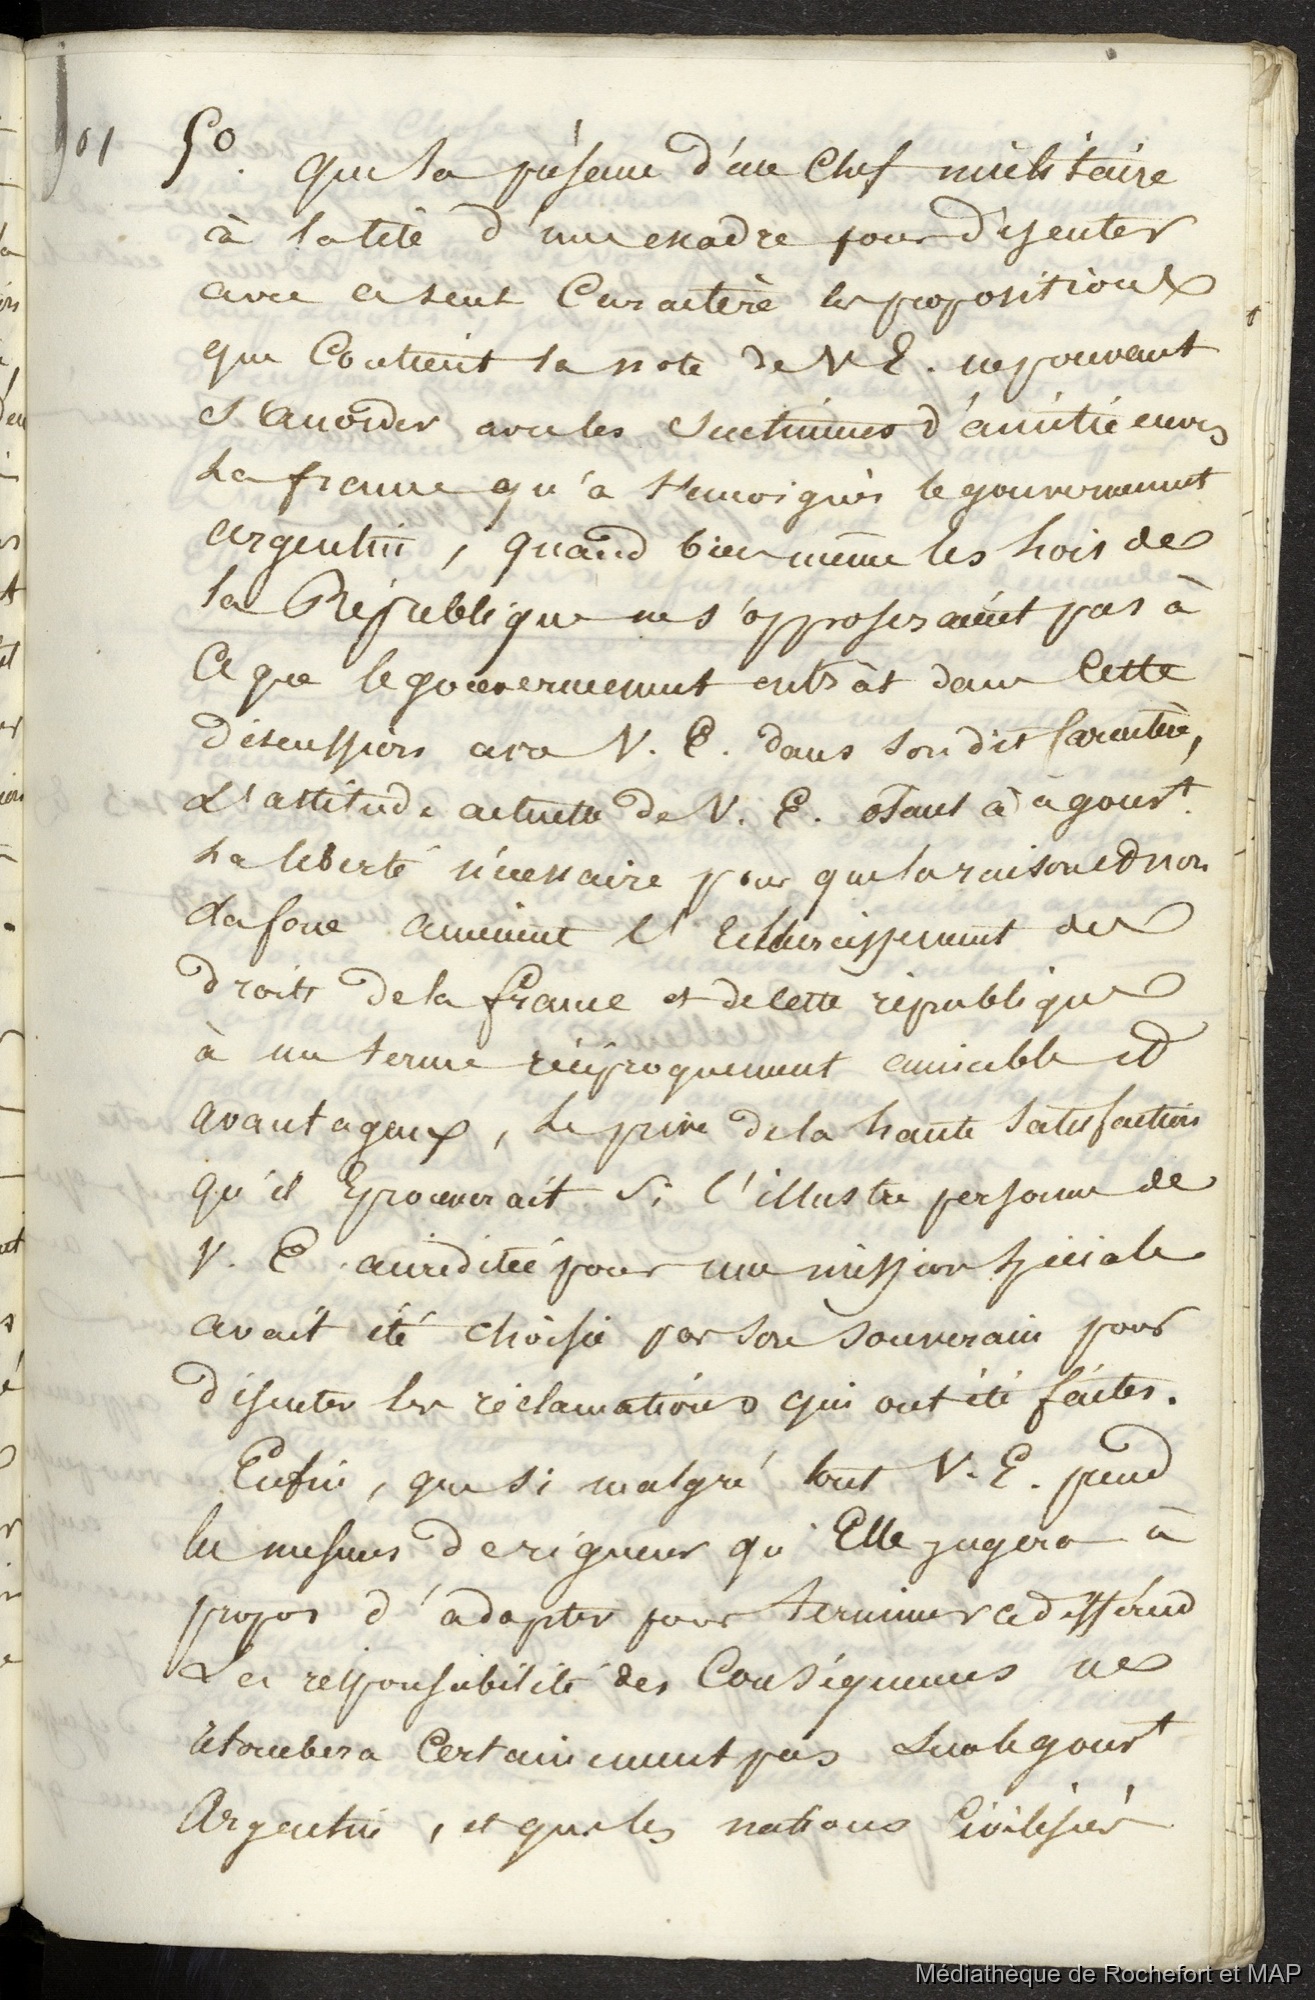 101
5º. que la présence d'un Chef militaire
à la tête d'une escadre pour discuter
avec ce seul Caractère les propositions
que Contient la note de V E. ne pouvant
s'accorder avec les sentimens d'amitié envers
La france qu'a témoignés le gouvernement
argentin, quand bien même les Lois de
la République ne s'opposeraient pas à
Ce que le gouvernement entrât dans Cette
discussion avec V. E. dans son dit Caractère,
L'attitude actuelle de V. E. ôtant à ce gouvt
La liberté nécessaire pour que la raison et non
La force amènent l'Eclaircissement des
droits de la france et de cette république
à un terme réciproquement amicable et
avantageux, Le prive de la haute Satisfaction
qu'il Eprouverait Si l'illustre personne de
V. E. accréditée pour une mission Spéciale
avait été choisie par son Souverain pour
discuter les réclamations qui ont été faites.
Enfin, que si malgré tout V. E. prend
les mesures de rigueur qu'Elle jugera à
propos d'adopter pour terminer ce différend
La responsabilité des Conséquences ne
retombera Certainement pas sur le gouvt
Argentin, et que les nations Civilisées
Médiathèque de Rochefort et MAP